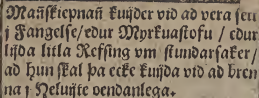 Mañskiepnañ kuijder vid ad vera sett
j Fangelse/edur Myrkuastofu / edur
lijda litla Refsing vm stundarsaker/
ad hun skal þa ecke kuijda vid ad bren
na j Heluijte oendanlega.